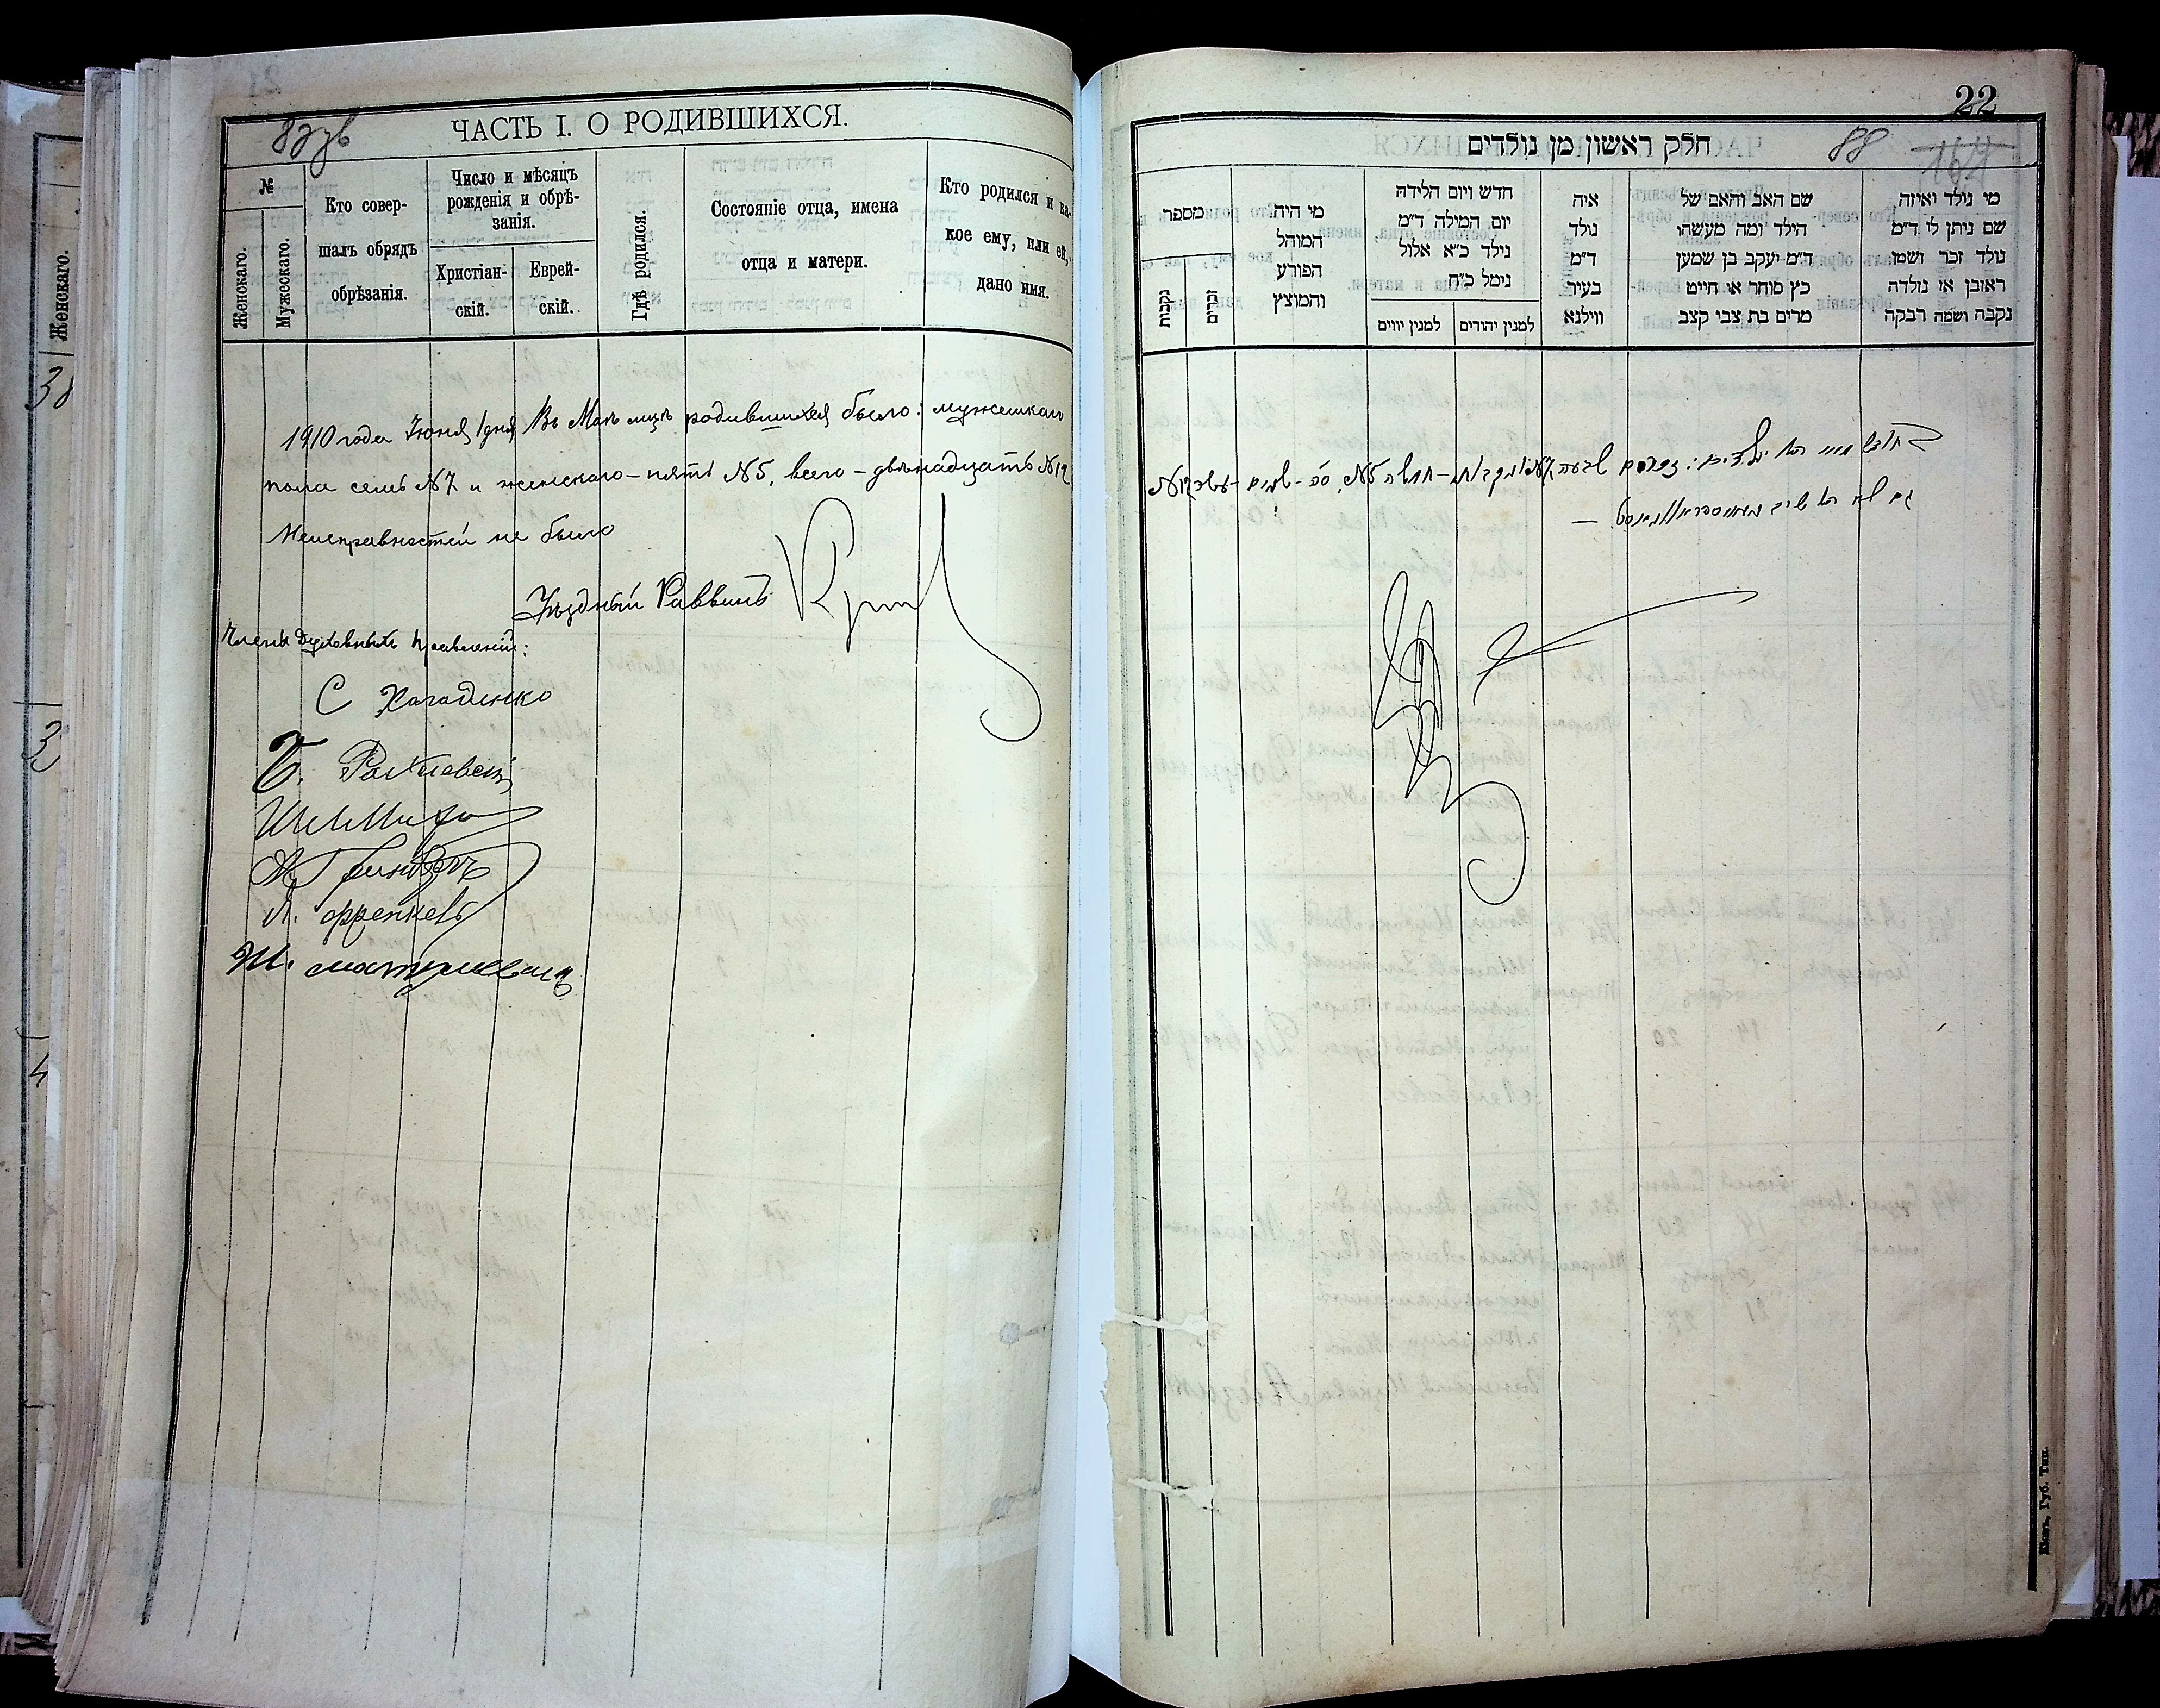 87 зв
ЧАСТЬ I. О РОДИВШИХСЯ.
№
Женскаго.
Мужескаго.
Кто совер-
шалъ обрядъ
обрѣзанія.
Число и мѣсяцъ
рожденія и обрѣ-
занія.
Христіан-
скій.
Еврей-
скій.
Гдѣ родился.
Состояніе отца, имена
отца и матери.
Кто родился и ка-
кое ему, или ей,
дано имя.
1910 года Іюня 1 дня Въ Маѣ мцѣ родившихся было: мужескаго
пола семь №7 и женскаго – пять №5, всего – двѣнадцать №12
Неисправностей не было
Уѣздный Раввинъ
Члены Духовныхъ Правленій:
С
Б.
Л. Френкель
Ш.
Женскаго.
22
164
88
חלק ראשון מן נולדים
מספר
נקבות
זכרים
מי היה
המוהל
הפורע
והמוצץ
חדש ויום הלידה
יום המילה ד״מ
נילד כ״א אלול
נימל כ״ח
למנין יווים
למנין יהודים
איה
נולד
ד״מ
בעיר
ווילנא
שם האב והאם של
הילד ומה מעשהו
ד״מ יעקב בן שמען
כץ סוחר או חייט
מרים בת צבי קצב
מי נולד ואיזה
שם ניתן לי ד״מ
נולד זכר ושמו
ראובן או נולדה
נקבה ושמה רבקה
בחדש מאי היו ילדים: זכרים שבעה №7 ונקבות – חמשה №5, סה – שנים – עשר №12
Кіевъ, Губ. Тип.